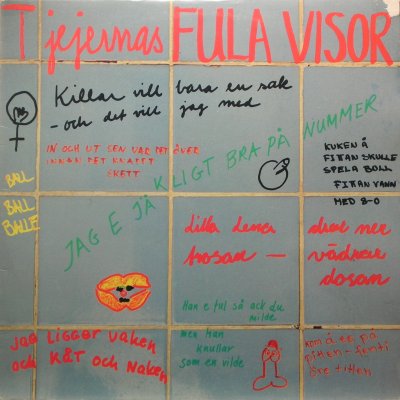 Tjejernas FULA VISOR
Killar vill bara en sak
- och det vill jag med
IN OCH UT SEN VAR DET ÖVER
INNAN DET KNAPPT
SKETT
BALL
BALL
BALLE
JAG E JÄKLIGT BRA PÅ NUMMER
KUKEN Å
FITTAN SKULLE
SPELA BOLL
FITTAN VANN
MED 8-0
dilla
hosan —
drar ner
vädrar
dosan
Han e ful så ack du
milde
men han
knullar
som en vilde
jag LIGGER VAKEN
och KÅT och NAKEN
KOM Å SE PÅ
pitten - femti
öre titten